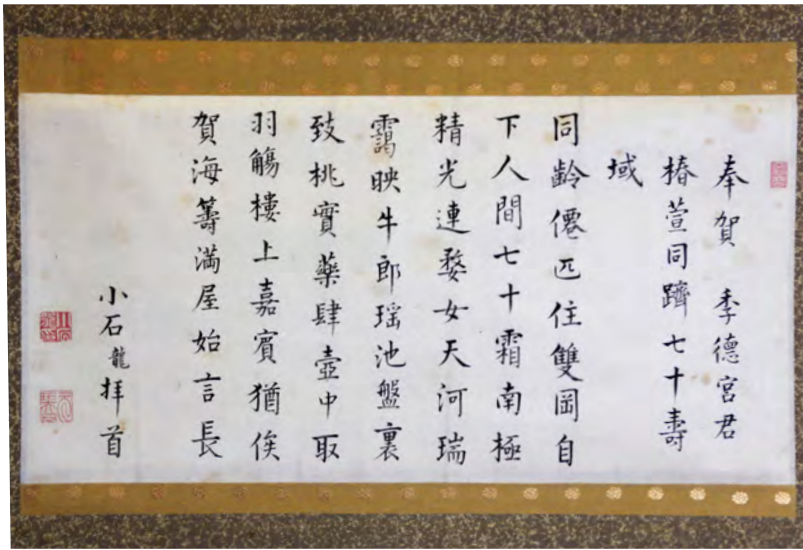 奉賀 季德宮君
椿萱同躋七十壽
域
同齡僊匹住雙岡自
下人間七十霜南極
精光連婺女天河瑞
靄映牛郎瑶池盤裏
致桃實藥肆壺中取
羽觴樓上嘉賓猶俟
賀海籌満屋始言長
小石龍拝首